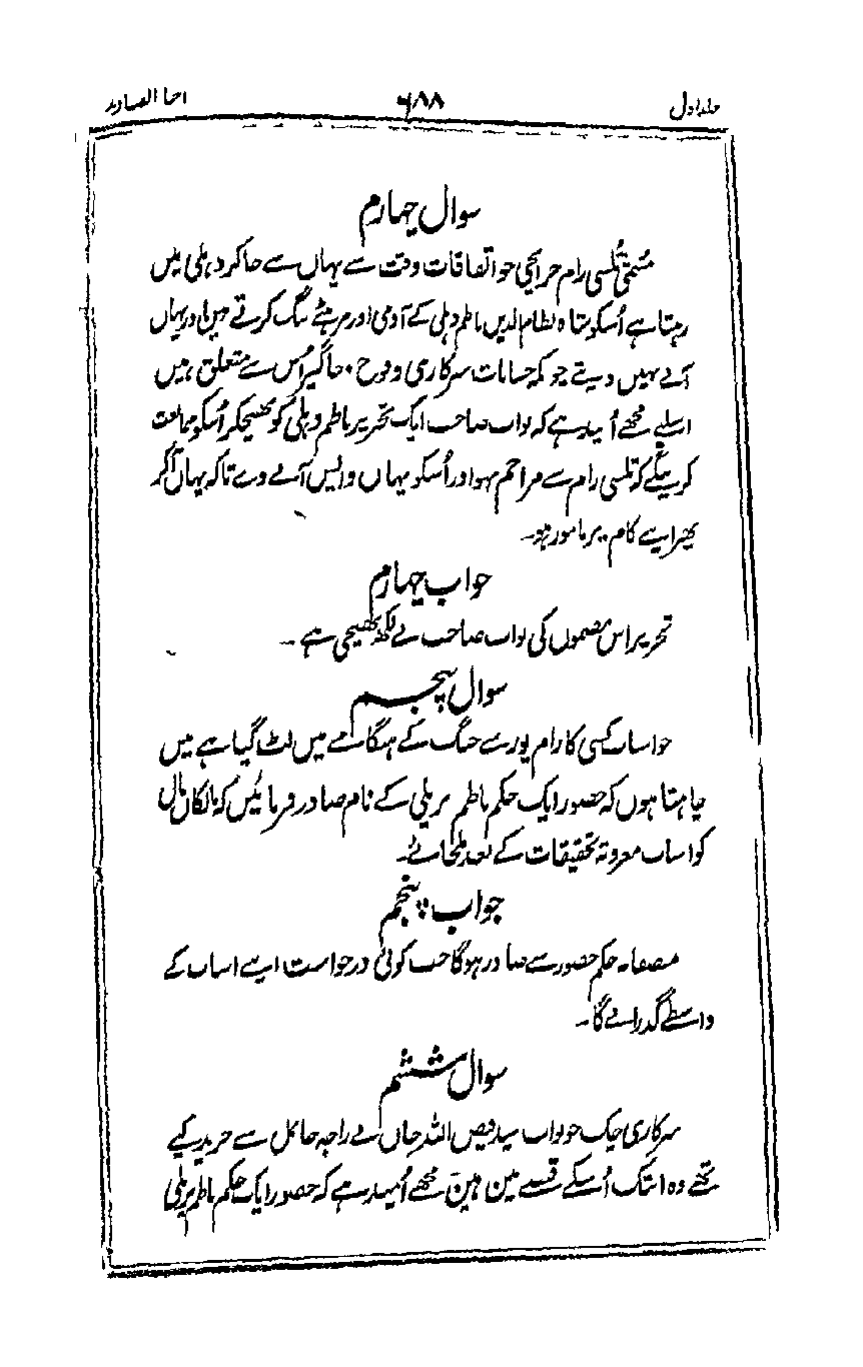 جلد اول ۶۸۸ اخبار الصنادید
سوال چہارم
مسمّی تُلسی رام خزانچی جو اتفاقات وقت سے یہاں سے جاکر دہلی میں
رہتا ہے اُسکو شاہ نظام الدین ناظم دہلی کے آدمی اور مرہٹے تنگ کرتے ہیں اور یہاں
آنے نہیں دیتے جو کہ حسابات سرکاری و فوج و جاگیر اُس سے متعلق ہیں
اسلیے مجھے اُمید ہے کہ نواب صاحب ایک تحریر ناظم دہلی کو بھیجکر اُسکو ممانعت
کرینگے کہ تلسی رام سے مزاحم نہو اور اُسکو یہاں واپس آنے دے تاکہ یہاں آکر
پھر اپنے کام پر مامور ہو۔
جواب چہارم
تحریر اس مضمون کی نواب صاحب نے لکھ بھیجی ہے۔
سوال پنجم
جو اسباب کسی کا رام پور سے جنگ کے ہنگامے میں لٹ گیا ہے میں
چاہتا ہوں کہ حضور ایک حکم ناظم بریلی کے نام صادر فرمائیں کہ مالکان مال
کو اسباب معروتہ تحقیقات کے بعد ملجائے۔
جواب پنجم
منصفانہ حکم حضور سے صادر ہوگا جب کوئی درخواست ایسے اسباب کے
واسطے گذرانے گا۔
سوال ششم
سرکاری چک جو نواب سید فیض اللہ خاں نے راجہ سے خرید کیے
تھے وہ ابتک اُسکے قبضے مین ہین مجھے اُمید ہے کہ حضور ایک حکم ناظم بریلی